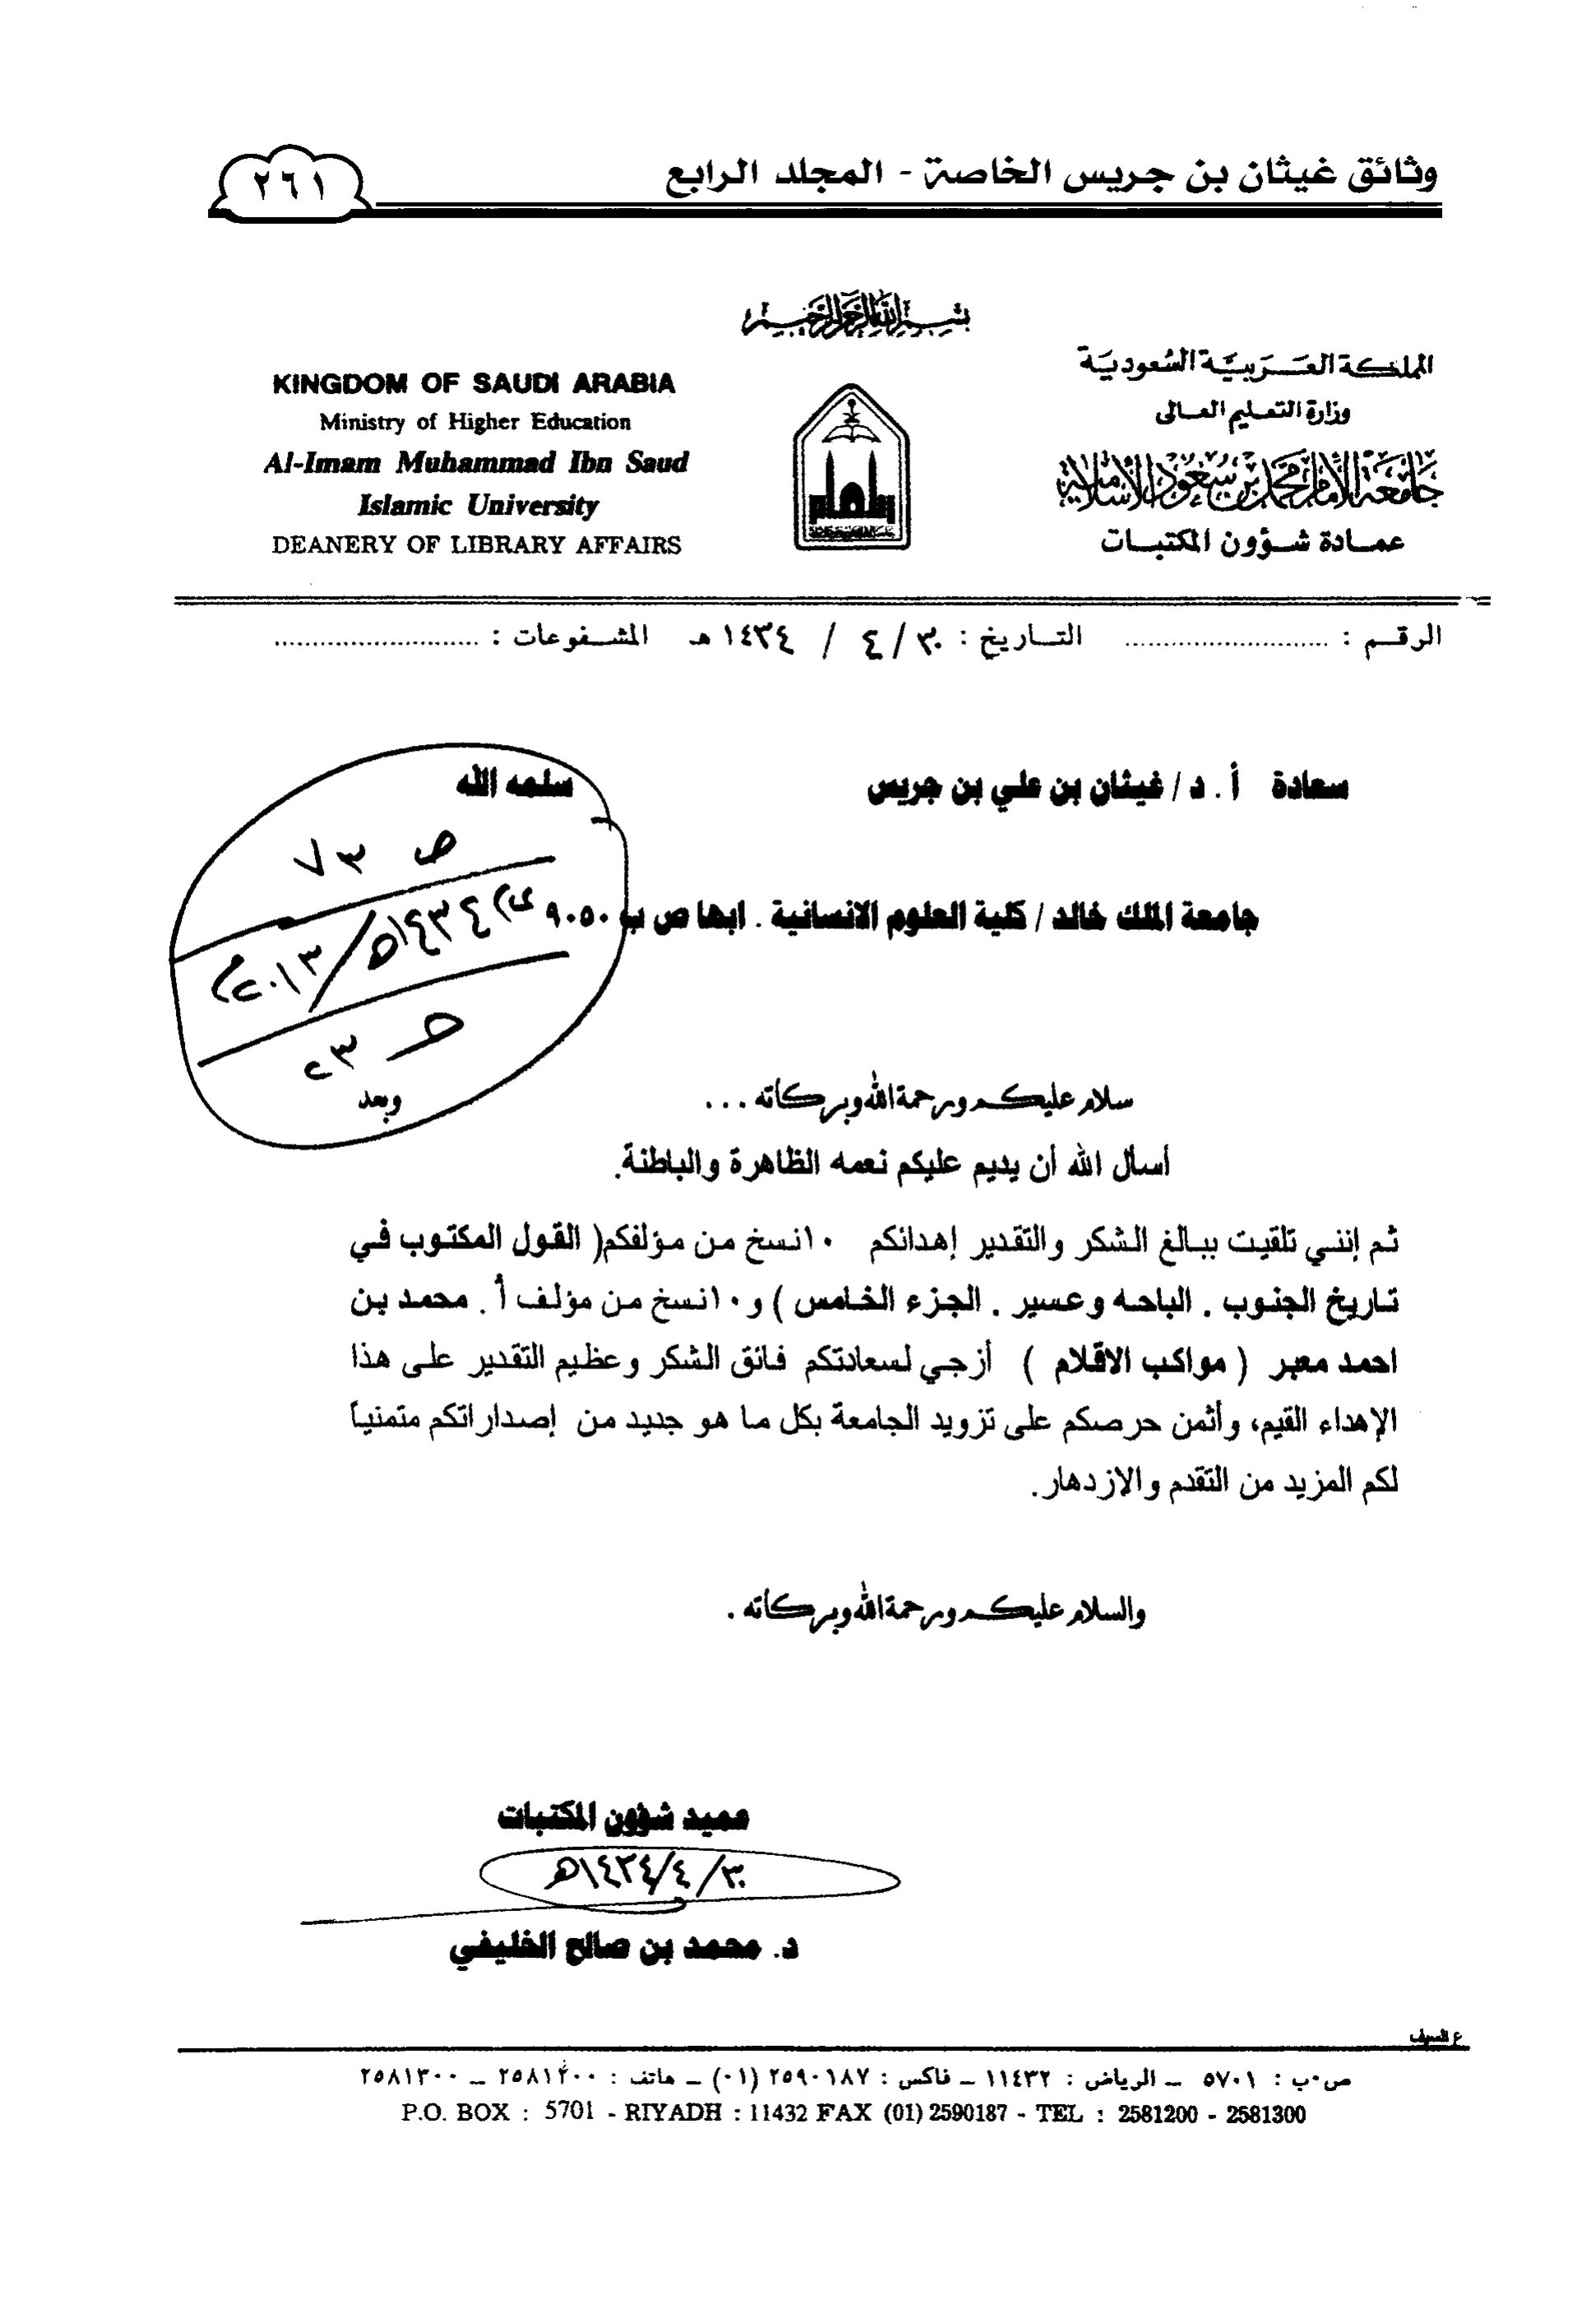 وثائق غيثان بن جريس الخاصة - المجلد الرابع
٢٦١
بسم الله الرحمن الرحيم
المملكة العربية السعودية
وزارة التعليم العالى
جامعة الإمام محمد بن سعود الإسلامية
عمادة شؤون المكتبات
KINGDOM OF SAUDI ARABIA
Ministry of Higher Education
Al-Imam Muhammad Ibn Saud
Islamic University
DEANERY OF LIBRARY AFFAIRS
الرقم : .......................... التاريخ : ٣٠ / ٤ / ١٤٣٤ هـ المشفوعات : ..........................
سعادة أ. د / غيثان بن علي بن جريس سلمه الله
جامعة الملك خالد / كلية العلوم الانسانية . ابها ص ب ٩٠٥٠
ص ٧٣
١٤٣٤هـ / ٢٠١٣م
حـ ٢٣
سلام عليكم ورحمة الله وبركاته ... وبعد
أسأل الله أن يديم عليكم نعمه الظاهرة والباطنة.
ثم إنني تلقيت ببالغ الشكر والتقدير إهدائكم ١٠نسخ من مؤلفكم( القول المكتوب في
تاريخ الجنوب . الباحه وعسير . الجزء الخامس ) و١٠نسخ من مؤلف أ . محمد بن
احمد معبر ( مواكب الاقلام ) أزجي لسعادتكم فائق الشكر وعظيم التقدير على هذا
الإهداء القيم، وأثمن حرصكم على تزويد الجامعة بكل ما هو جديد من إصداراتكم متمنياً
لكم المزيد من التقدم والازدهار.
والسلام عليكم ورحمة الله وبركاته .
عميد شؤون المكتبات
٣٠/٤/١٤٣٤هـ
د. محمد بن صالح الخليفي
ع السيف
ص٠ب : ٥٧٠١ ــ الرياض : ١١٤٣٢ ــ فاكس : ٢٥٩٠١٨٧ (٠١) ــ هاتف : ٢٥٨١٢٠٠ ــ ٢٥٨١٣٠٠
P.O. BOX : 5701 - RIYADH : 11432 FAX (01) 2590187 - TEL : 2581200 - 2581300